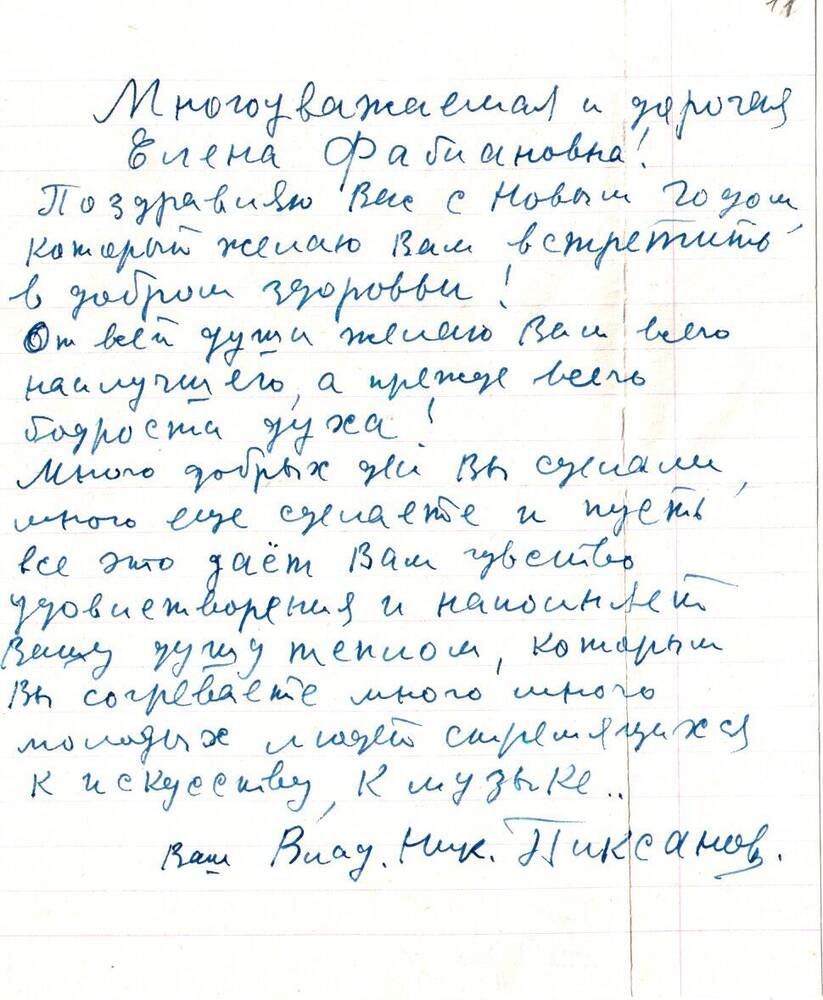 11
Многоуважаемая и дорогая
Елена Фабиановна!
Поздравляю Вас с Новым Годом
который желаю Вам встретить
в добром здоровьи!
От всей души желаю Вам всего
наилучшего, а прежде всего
бодрости духа!
Много добрых дел Вы сделали,
много еще сделаете и пусть
все это даёт Вам чувство
удовлетворения и наполняет
Вашу душу теплом, которым
Вы согреваете много много
молодых людей стремящихся
к искусству, к музыке..
Ваш Влад. Ник. Пиксанов.